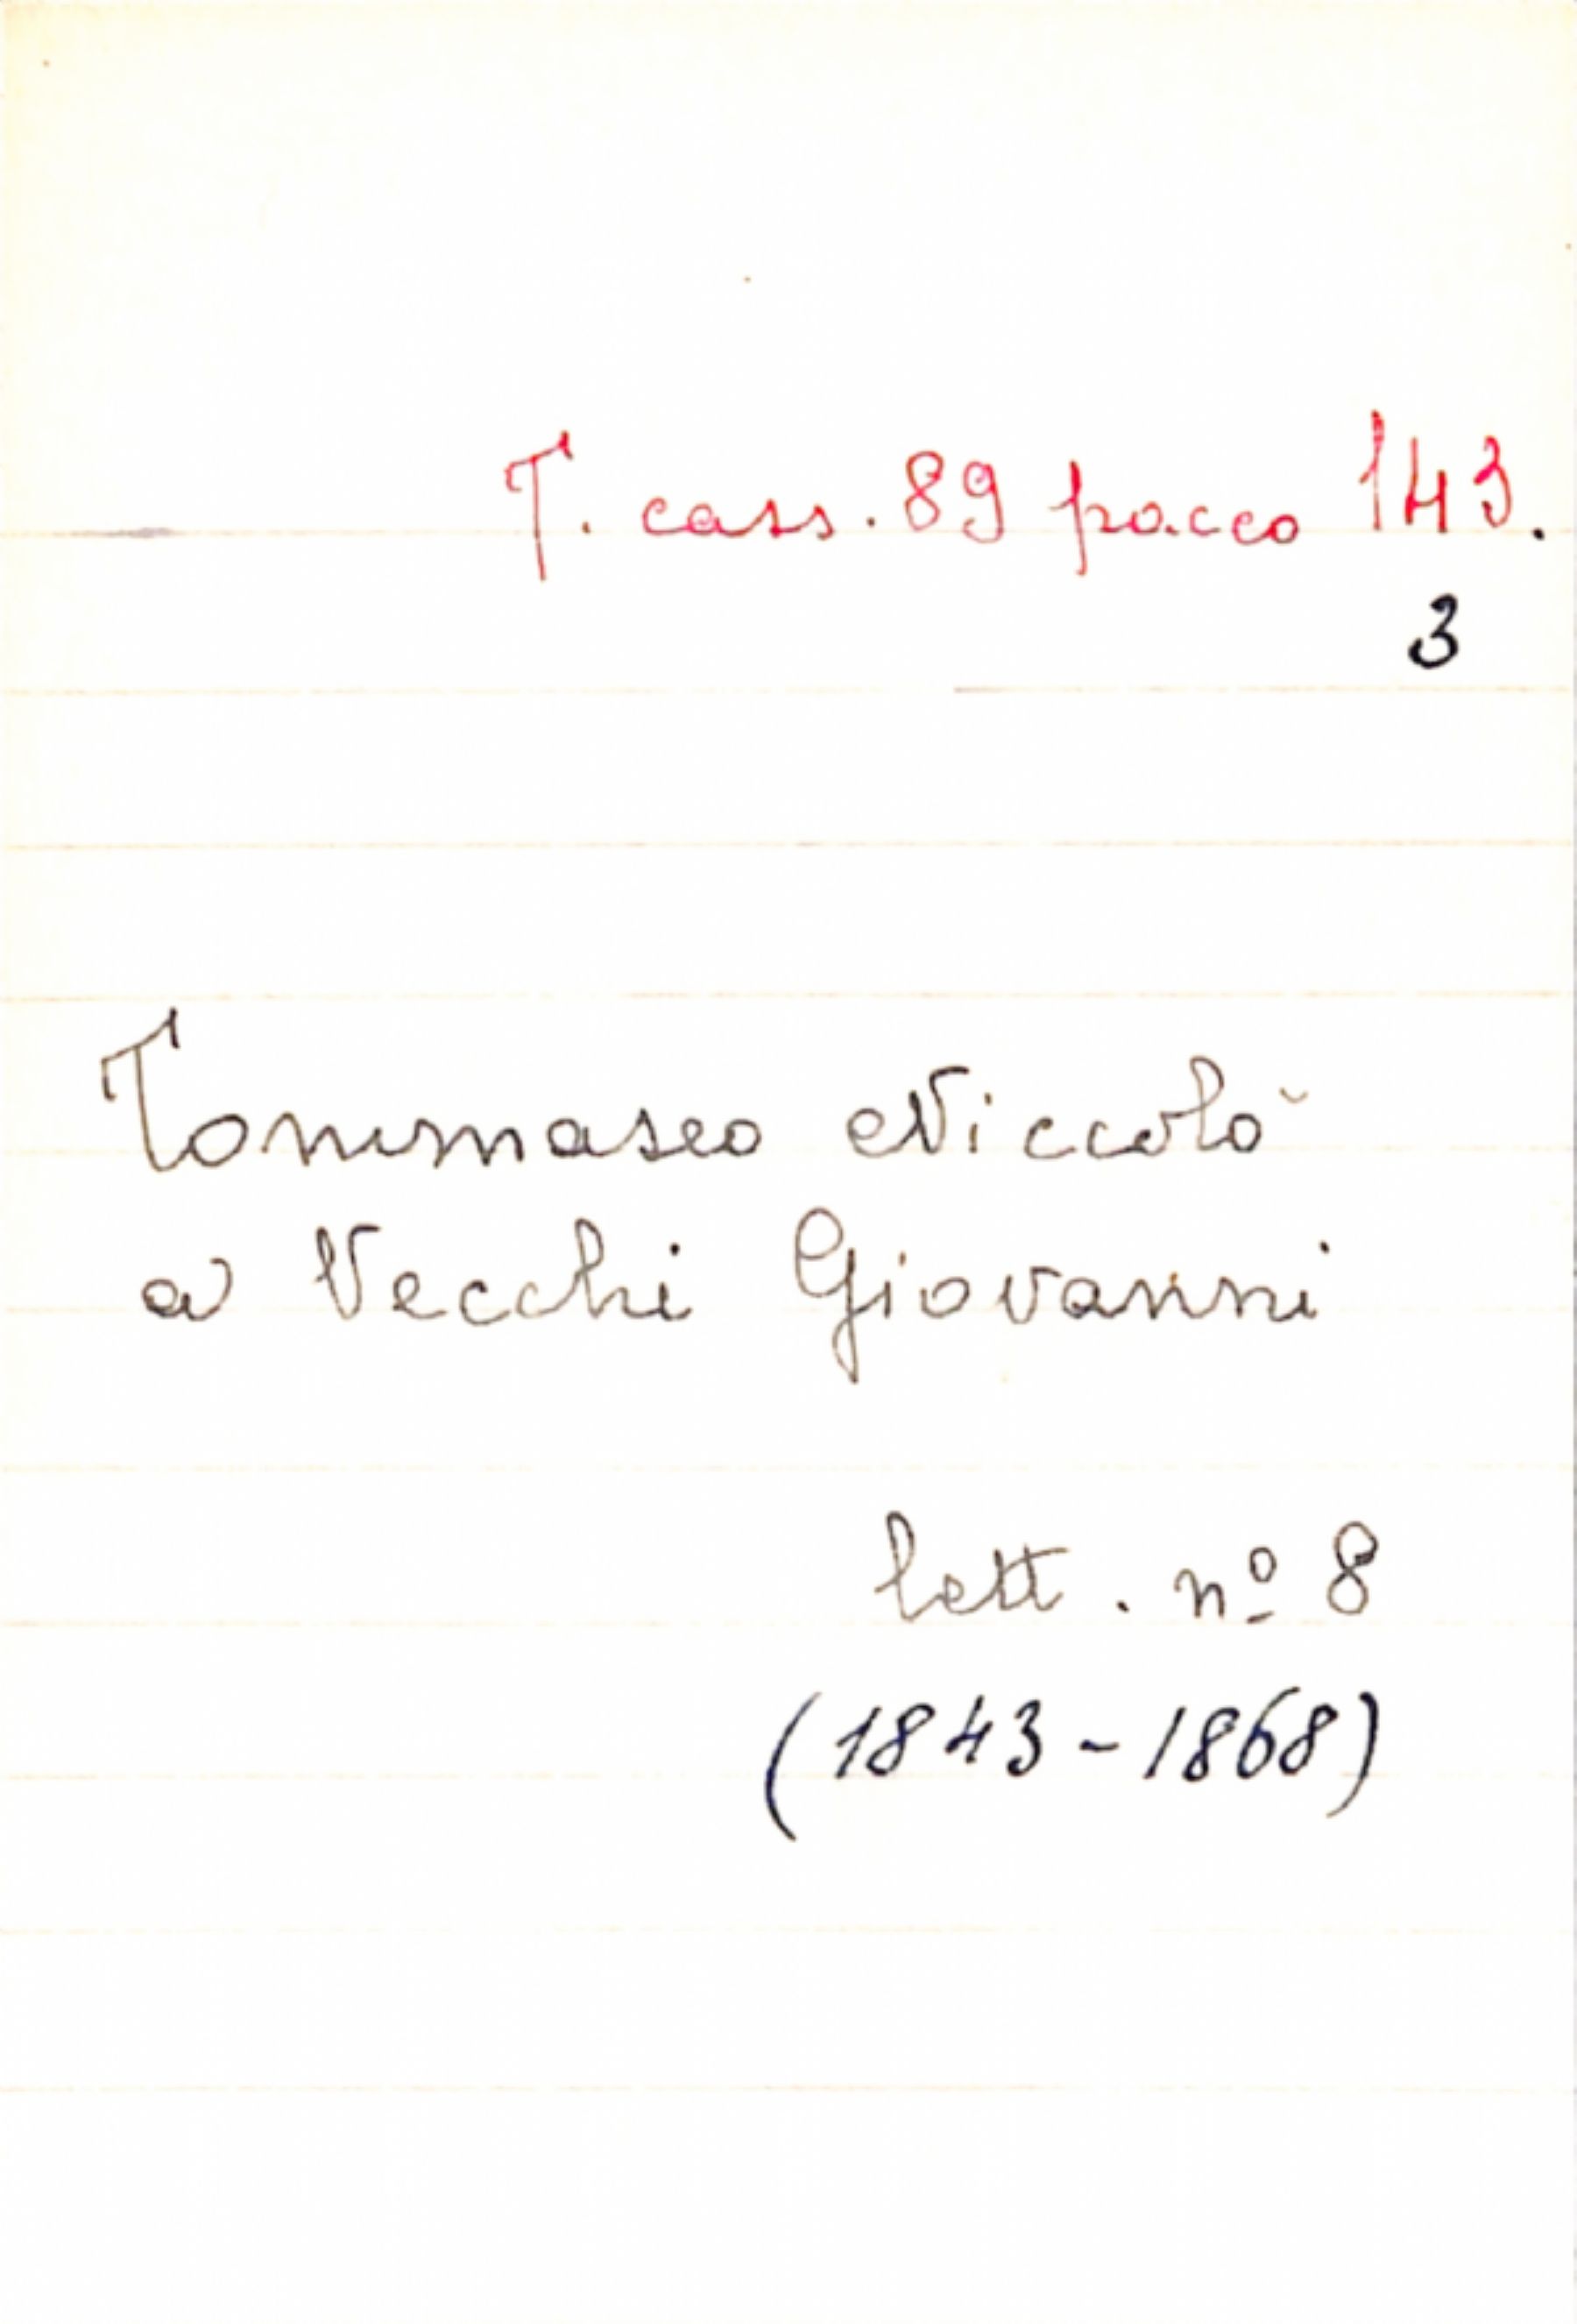 T. cass. 89 pacco 143.
3
Tommaseo Niccolò
a Vecchi Giovanni
lett. nº 8
(1843-1868)